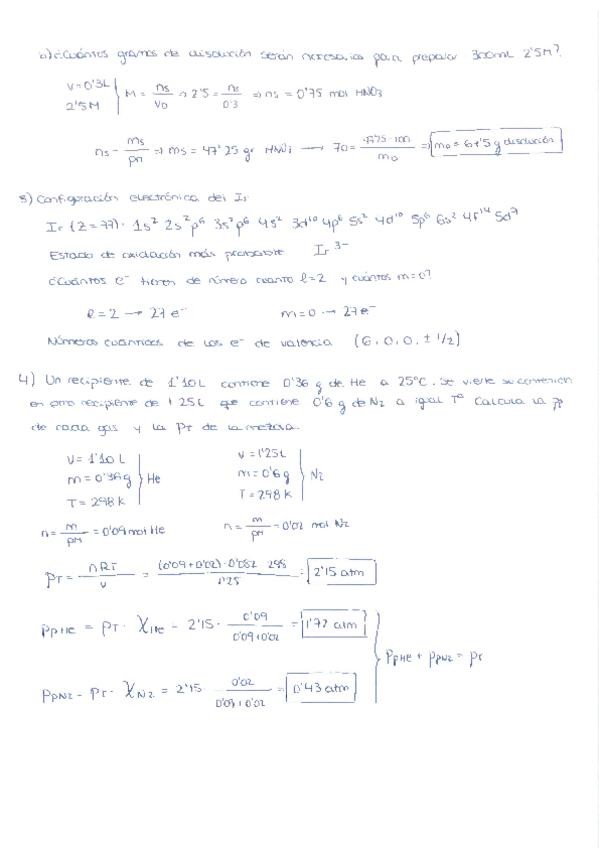 b) ¿Cuántos gramos de disolución serán necesarios para preparar 300mL 2'5M?
V=0'3L
2'5M
M = ns/V0 → 2'5 = ns/0'3 ⇒ ns = 0'75 mol HNO3
ns = ms/pn ⇒ ms = 47'25 gr HNO3 → 70 = 47'25·100/mD ⇒ mD = 67'5 g disolución
3) Configuración electrónica del Ir
Ir (Z=77): 1s² 2s² p⁶ 3s² p⁶ 4s² 3d¹⁰ 4p⁶ 5s² 4d¹⁰ 5p⁶ 6s² 4f¹⁴ 5d⁷
Estado de oxidación más probable Ir³⁻
¿Cuántos e⁻ tienen de número cuanto l=2 y cuántos m=0?
l=2 → 27 e⁻ m=0 → 27 e⁻
Números cuánticos de los e⁻ de valencia (6, 0, 0, ± 1/2)
4) Un recipiente de 1'10L contiene 0'36 g de He a 25°C. Se vierte su contenido
en otro recipiente de 1'25L que contiene 0'6 g de N2 a igual Tª Calcula la pp
de cada gas y la PT de la mezcla.
V=1'10L
m=0'36g
T=298K
He
V=1'25L
m=0'6g
T=298K
N2
n = m/pM = 0'09 mol He n = m/pM = 0'02 mol N2
PT = nRT/V = (0'09+0'02)·0'082·298/1'25 = 2'15 atm
PpHe = PT · XHe = 2'15 · 0'09/0'09+0'02 = 1'72 atm
PpN2 = PT · XN2 = 2'15 · 0'02/0'09+0'02 = 0'43 atm
PpHe + PpN2 = PT